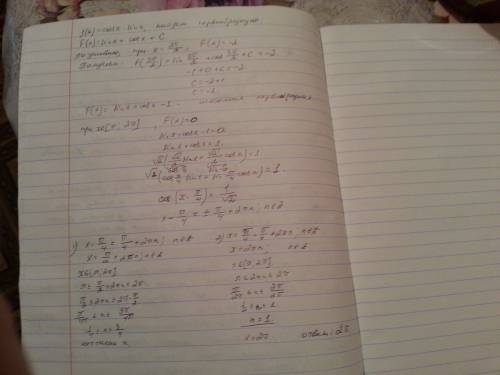 f(x)=cosx-sinx, найдем первообразную
F(x)=sinx+cosx+C
по условию, при x=3π/2, F(x)=-2
Получаем: F(3π/2)=sin 3π/2+cos 3π/2+C=-2
-1+0+C=-2
C=-2+1
C=-1
F(x)=sinx+cosx-1 первообразная
при x∈[π, 2π], F(x)=0
sinx+cosx-1=0
sinx+cosx=1
√2(√2/2 sinx+√2/2 cosx)=1
cos(x-π/4)=1/√2
x-π/4=±π/4+2πn; n∈Z
1) x=π/4+π/4+2πn; n∈Z
x=π/2+2πn; n∈Z
x∈[π, 2π]
π≤π/2+2πn≤2π
π/2≤2πn≤2π-π/2
1/4≤n≤3/4
нет таких n
2) x=π/4-π/4+2πn; n∈Z
x=2πn, n∈Z
x∈[π, 2π]
π≤2πn≤2π
π/2π≤n≤2π/2π
1/2≤n≤1
n=1
x=2π
ответ: 2π